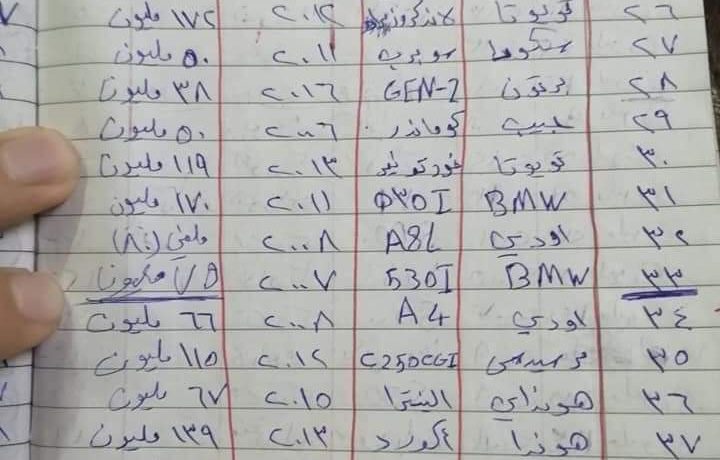 ٢٦ تويوتا لاندكروزر ٢٠١٢ ١٧٢ مليون
٢٧ سكودا سوبرب ٢٠١١ ٥٠ مليون
٢٨ برتون GEN-2 ٢٠١٦ ٣٨ مليون
٢٩ جيب كوماندر ٢٠٠٦ ٥٠ مليون
٣٠ تويوتا فورتونر ٢٠١٣ ١١٩ مليون
٣١ BMW ٥٣٥I ٢٠١١ ١٧٠ مليون
٣٢ اودي A8L ٢٠٠٨ ملغي (٨٠)
٣٣ BMW 530I ٢٠٠٧ ٧٥ مليون
٣٤ اودي A4 ٢٠٠٨ ٦٦ مليون
٣٥ مرسيدس C250CGI ٢٠١٢ ١١٥ مليون
٣٦ هونداي النترا ٢٠١٥ ٦٧ مليون
٣٧ هوندا اكورد ٢٠١٣ ١٣٩ مليون